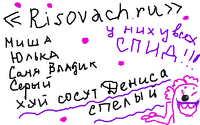 «Risovach.ru»
у них у всех
СПИД!!!
Миша
Юлька
Саня Владик
Серый
хуй сосут Дениса
спелый